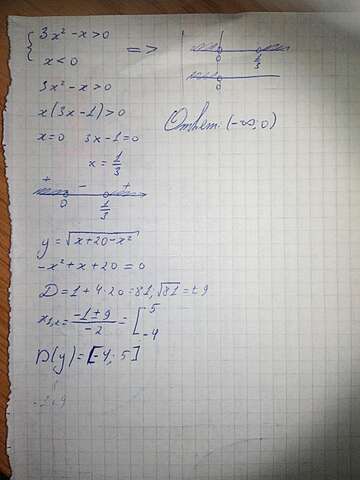 { 3x² - x > 0
x < 0
=>
0 1/3
0
3x² - x > 0
x(3x - 1) > 0
x = 0 3x - 1 = 0
x = 1/3
+ - +
0 1/3
Ответ: (-∞; 0)
y = √(x + 20 - x²)
-x² + x + 20 = 0
D = 1 + 4·20 = 81, √81 = ±9
x₁,₂ = (-1 ± 9)/(-2) = [ 5
-4
D(y) = [-4; 5]